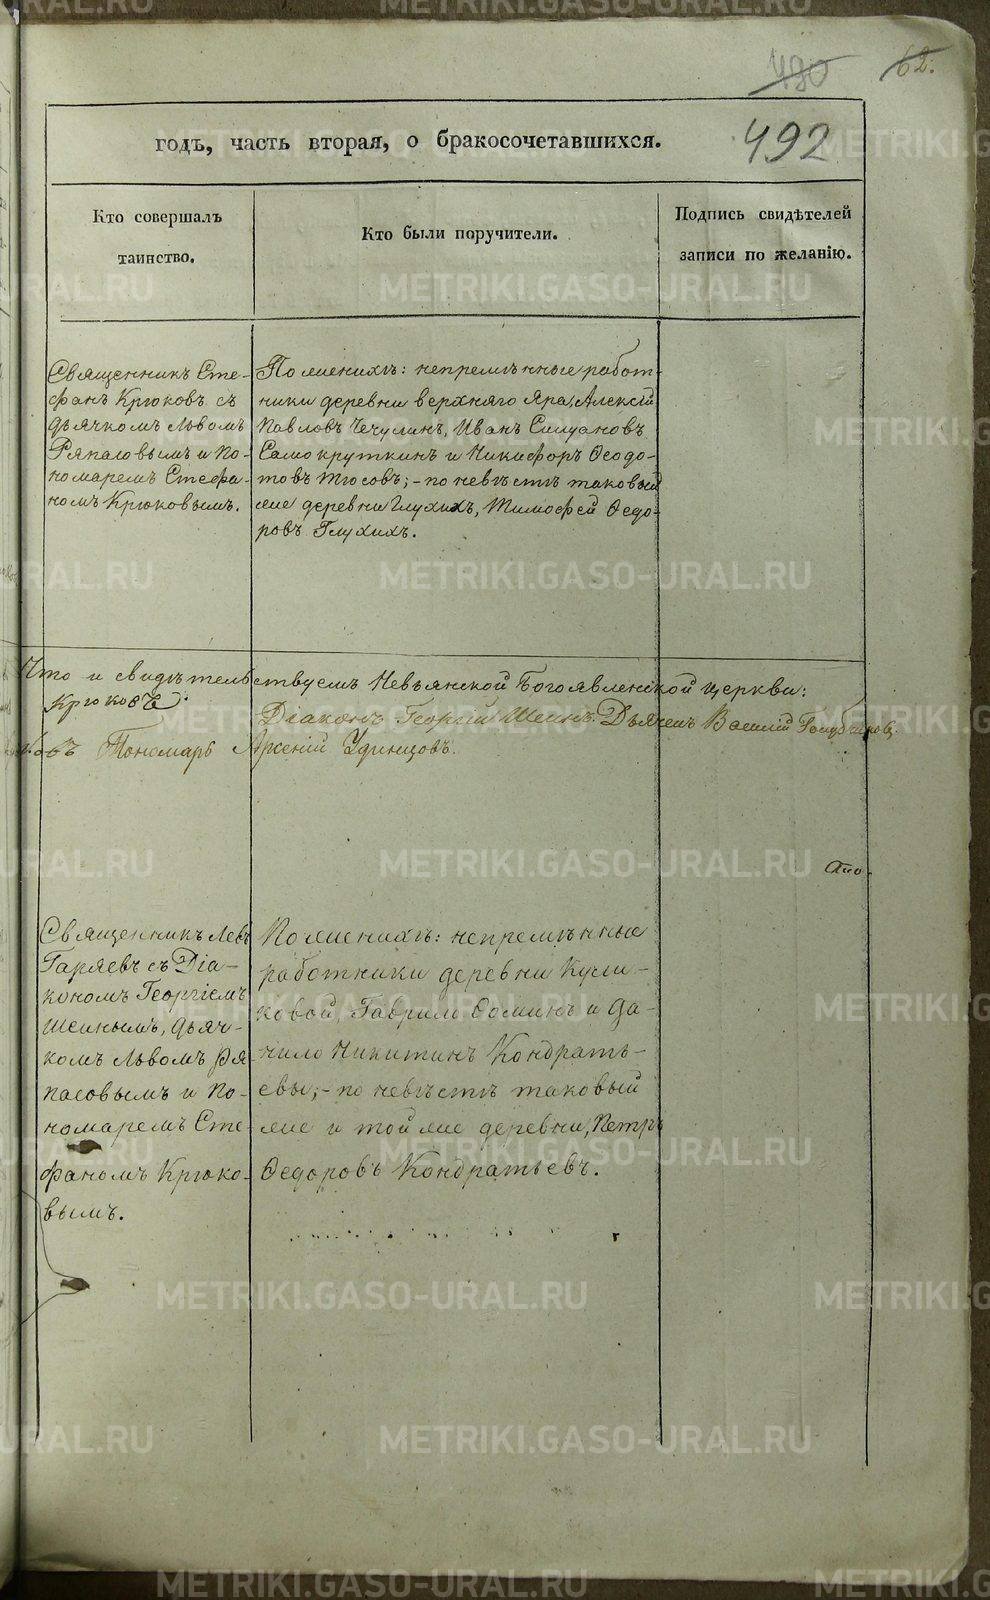 480
62.
годъ, часть вторая, о бракосочетавшихся.
492
Кто совершалъ
таинство.
Кто были поручители.
Подпись свидѣтелей
записи по желанію.
Священникъ Сте-
фанъ Крюковъ съ
дьячкомъ Львомъ
Ряпасовымъ и по-
номаремъ Стефа-
номъ Крюковымъ.
По женихѣ: непремѣнные работ-
ники деревни верхняго Яра, Алексій
Павловъ Чечулинъ, Иванъ Силуановъ
Самокруткинъ и Никифоръ Ѳеодо-
товъ Тюсовъ; - по невѣстѣ таковый
же деревни Глухихъ, Тимофей Ѳедо-
ровъ Глухихъ.
Что и свидѣтельствуемъ Невьянской Богоявленской церкви:
Крюковъ
Діаконъ Георгій Шеинъ. Дьячекъ Василій Голубчиковъ
Пономарь Арсеній Удинцовъ.
Священникъ Левъ
Гаряевъ съ Діа-
кономъ Георгіемъ
Шеинымъ, дьяч-
комъ Львомъ Ря-
пасовымъ и по-
номаремъ Сте-
фаномъ Крюко-
вымъ.
По женихѣ: непремѣнные
работники деревни Кули-
ковой, Гаврило Ѳоминъ и Да-
нило Никитинъ Кондрать-
евы; - по невѣстѣ таковый
же и той же деревни, Петръ
Ѳедоровъ Кондратьевъ.
METRIKI.GASO-URAL.RU